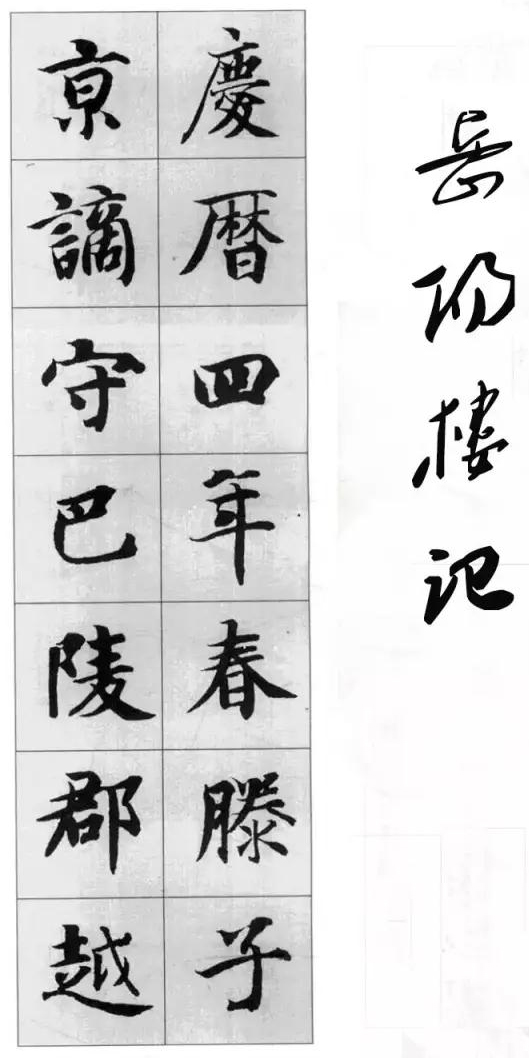 岳阳楼记
慶曆四年春滕子
京謫守巴陵郡越